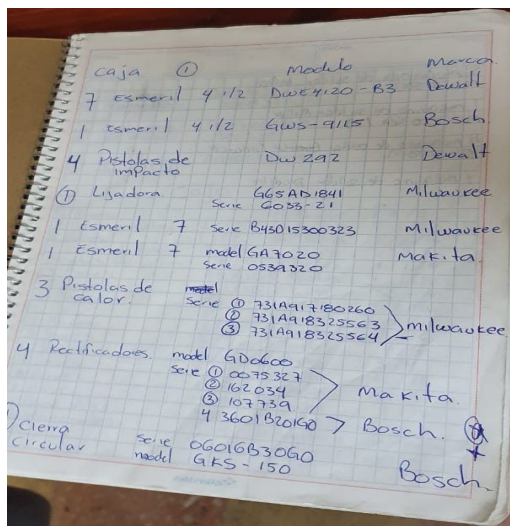 caja ① Modulo Marca
7 Esmeril 4 1/2 DWE4120-B3 Dewalt
1 Esmeril 4 1/2 GWS-9115 Bosch
4 Pistolas de impacto DW292 Dewalt
① Lijadora G65AD1841 Milwaukee
Serie 6033-21
1 Esmeril 7 serie B43D15300323 Milwaukee
1 Esmeril 7 model GA7020 Makita.
serie 0539320
3 Pistolas de calor.
serie ① 731A917180260
② 731A918325563 Milwaukee
③ 731A918325564
4 Rectificadores. model GD0600
Serie ① 0075327
② 162034 Makita.
③ 107739
4 3601B201G0 > Bosch.
① Cierra circular serie 06016B30G0
model GKS-150 Bosch.